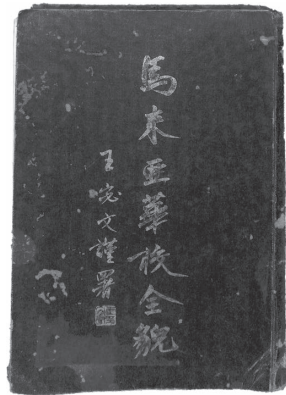 馬來亞華校全貌
王宓文謹署